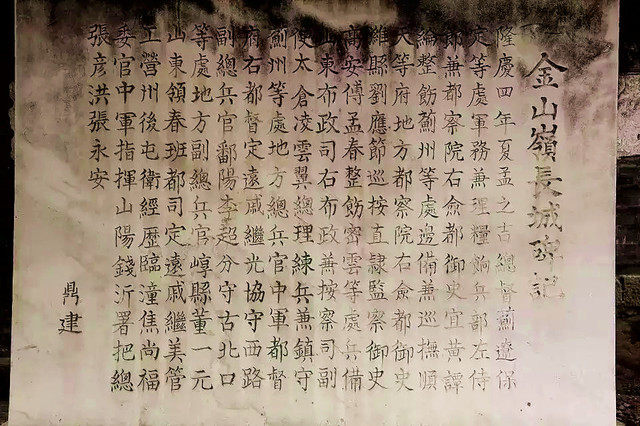 金山嶺長城碑記
隆慶四年夏孟之吉總督薊遼保
定等處軍務兼理糧餉兵部左侍
郎兼都察院右僉都御史宜黃譚
綸整飭薊州等處邊備兼巡撫順
天等府地方都察院右僉都御史
濰縣劉應節巡按直隸監察御史
高安傅孟春整飭密雲等處兵備
山東布政司右布政兼按察司副
使太倉凌雲翼總理練兵兼鎮守
薊州等處地方總兵官中軍都督
府右都督定遠戚繼光協守西路
副總兵官鄱陽李超分守古北口
等處地方副總兵官崞縣董一元
山東領春班都司定遠戚繼美管
工營州後屯衛經歷臨潼焦尚福
委官中軍指揮山陽錢沂署把總
張彥洪張永安
鼎建